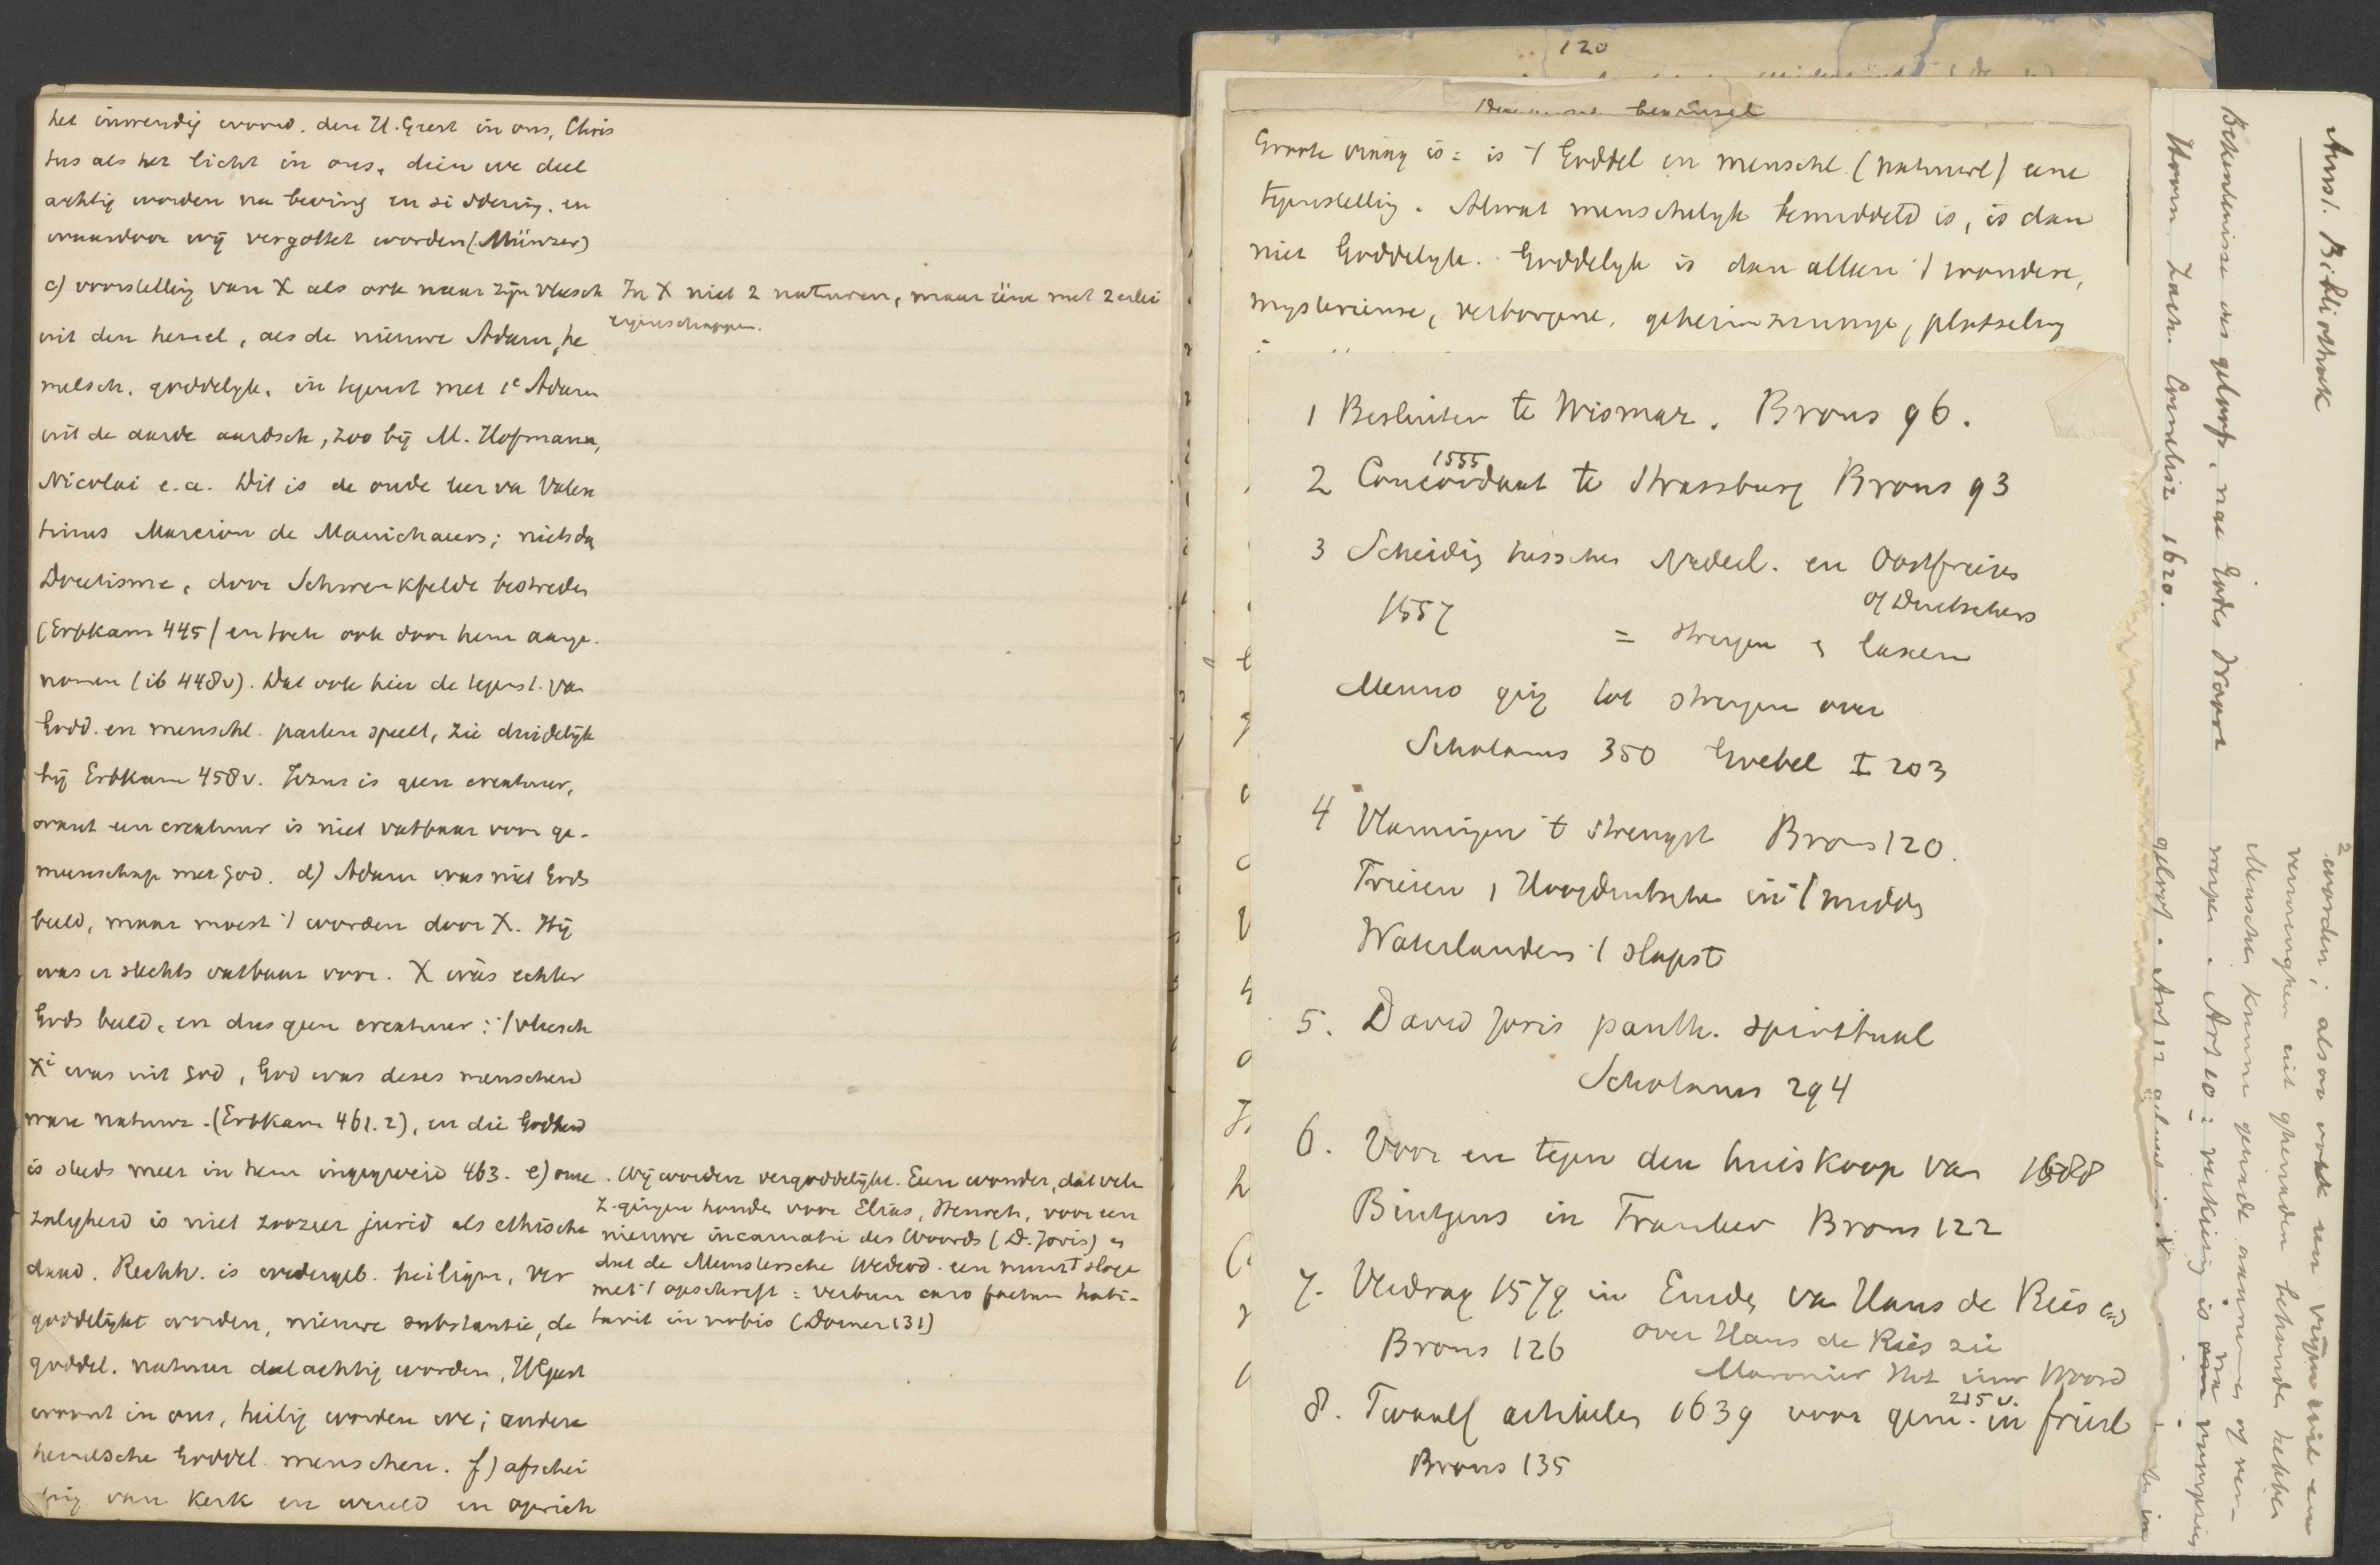 het inwendig woord. den H. Geest in ons, Chris
tus als het licht in ons, dien we deel
achtig worden na beving en siddering. en
waardoor wij vergottet worden (Münzer)
c) voorstelling van X als ook naar zijn vleesch
uit den hemel, als de nieuwe Adam, he
melsch. goddelijk. in tegenst met 1e Adam
uit de aarde aardsch, zoo bij M. Hofmann,
Nicolai e.a. Dit is de oude leer va Valen
tinus Marcion de Manichaeers; niets da
Docetisme, door Schwenkfeldt bestreden
(Erbkam 445) en toch ook door hem aange-
nomen (ib 448v). Dat ook hier de tegenst. va
Godd. en menschl. parten speelt, zie duidelijk
bij Erbkam 458v. Jezus is geen creatuur,
want een creatuur is niet vatbaar voor ge-
meenschap met God. d) Adam was niet Gods
beeld, maar moest 't worden door X. Hij
was er slechts vatbaar voor. X wàs echter
Gods beeld, en dus geen creatuur: 't vleesch
Xi was uit God, God was deses menschen
ware natuur. (Erbkam 461.2), en die Godheid
is steeds meer in hem ingegweid 463. e) onze
zaligheid is niet zoozeer jurid als ethische
daad. Rechtv. is wedergeb. heiligm, ver
goddelijkt worden, nieuwe substantie, de
goddel. natuur deelachtig worden, HGeest
woont in ons, heilig worden we; andere
hemelsche Goddel. menschen. f) afschei
ding van Kerk en wereld en oprich
In X niet 2 naturen, maar éene met 2 erlei
eigenschappen.
. Wij worden vergoddelijkt. Een wonder, dat vele
z. gingen houden voor Elias, Henoch, voor een
nieuwe incarnatie des Woords (D. Joris) en
dat de Munstersche Wederd. een munt sloge
met 't opschrift: verbum caro factum habi-
tavit in nobis (Dorner 131)
120
Groote vraag is: is 't Goddel en menschl. (natuurl) eene
tegenstelling. Alwat menschelijk bemiddeld is, is dan
niet Goddelijk. Goddelijk is dan alleen 't wondere,
mysterieuse, verborgene, geheimzinnige, plotseling
1 Besluiten te Wismar. Brons 96.
2 Concordaat te Strassburg Brons 93
1555
3 Scheiding tusschen Nederl. en Oostfriezen
1557
of Duitschers
= strengen en laxen
Menno ging tot strengen over
Scholanus 350 Goebel I 203
4 Vlamingen 't strengst Brons 120.
Friezen, Hoogduitschen in 't midden
Waterlanders 't slapst
5. David Joris panth. spiritual
Scholanus 294
6. Voor en tegen den huiskoop van 1588
Bintgens in Franeker Brons 122
7. Verdrag 1579 in Emden va Hans de Ries
Brons 126
over Hans de Ries zie
Maronier Het inw Woord
215 v.
8. Twaalf artikelen 1639 voor gem. in friesl
Brons 135
Amst. Bibliotheek
Bekentenisse des geloofs. nae Godes Woort
Hoorn Zach. Cornelisz 1620.
2 worden; alsoo oock een vrijen wil om
verwerghen uit ghenaden behoude hebben
geloof. Art 12